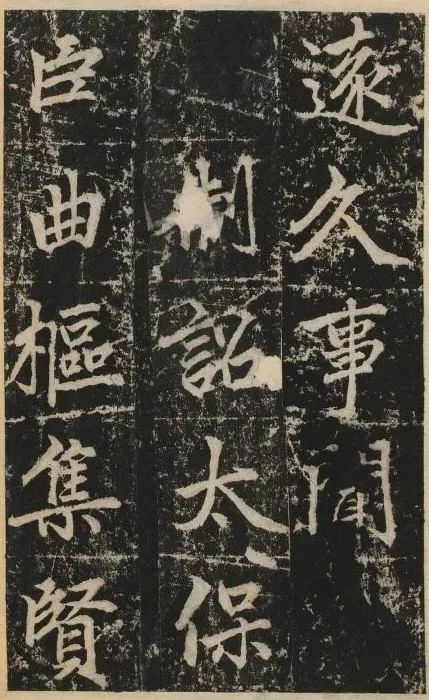 遠久事聞
制詔太保
臣曲樞集賢